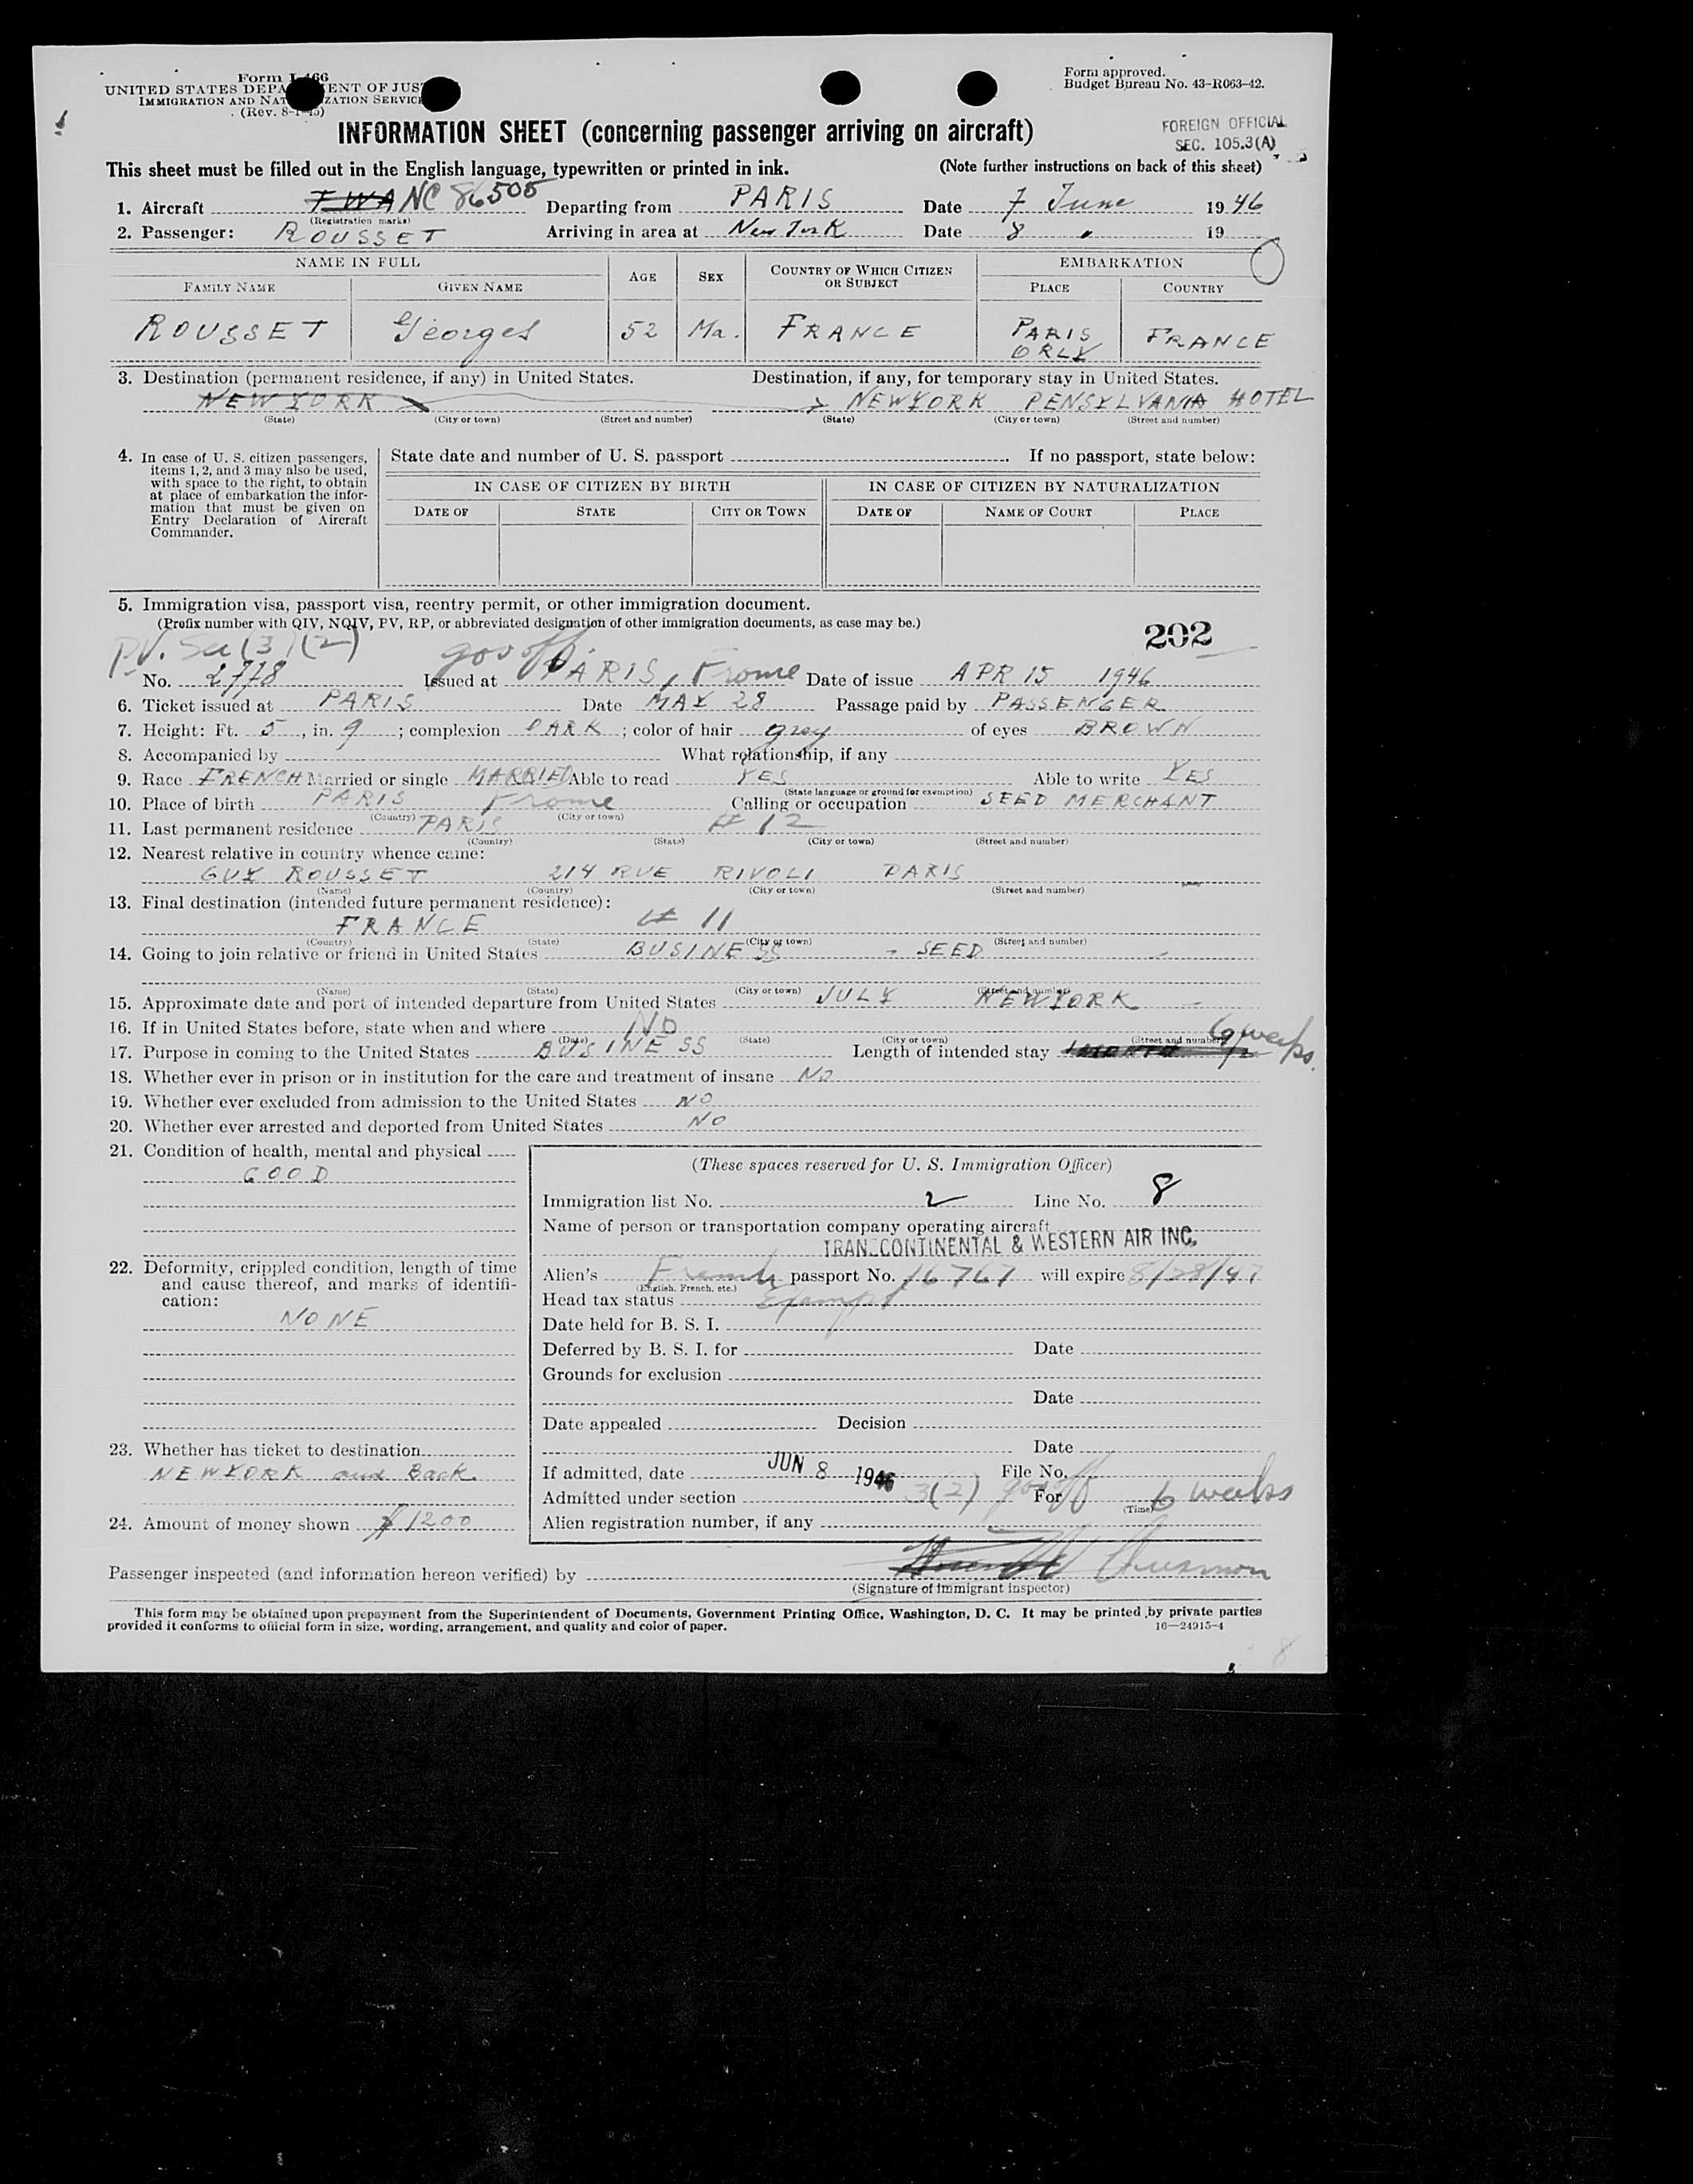 Form I-466
UNITED STATES DEPA ENT OF JUS
IMMIGRATION AND NAT IZATION SERVIC
(Rev. 8-1-45)
Form approved.
Budget Bureau No. 43-R063-42.
INFORMATION SHEET (concerning passenger arriving on aircraft)
FOREIGN OFFICIAL
SEC. 105.3(A)
This sheet must be filled out in the English language, typewritten or printed in ink. (Note further instructions on back of this sheet)
1. Aircraft TWA NC 86505 Departing from PARIS Date 7 June 1946
(Registration marks)
2. Passenger: ROUSSET Arriving in area at New York Date 8 " 19
NAME IN FULL AGE SEX COUNTRY OF WHICH CITIZEN OR SUBJECT EMBARKATION
FAMILY NAME GIVEN NAME PLACE COUNTRY
ROUSSET Georges 52 Ma. FRANCE PARIS ORLY FRANCE
3. Destination (permanent residence, if any) in United States. Destination, if any, for temporary stay in United States.
NEW YORK NEWYORK PENSYLVANIA HOTEL
(State) (City or town) (Street and number) (State) (City or town) (Street and number)
4. In case of U. S. citizen passengers, items 1, 2, and 3 may also be used, with space to the right, to obtain at place of embarkation the information that must be given on Entry Declaration of Aircraft Commander.
State date and number of U. S. passport If no passport, state below:
IN CASE OF CITIZEN BY BIRTH IN CASE OF CITIZEN BY NATURALIZATION
DATE OF STATE CITY OR TOWN DATE OF NAME OF COURT PLACE
5. Immigration visa, passport visa, reentry permit, or other immigration document.
(Prefix number with QIV, NQIV, PV, RP, or abbreviated designation of other immigration documents, as case may be.)
202
PV. Sec (3)(2) gov off.
No. 2778 Issued at PARIS, France Date of issue APR 15 1946
6. Ticket issued at PARIS Date MAY 28 Passage paid by PASSENGER
7. Height: Ft. 5, in. 9; complexion DARK; color of hair grey of eyes BROWN
8. Accompanied by What relationship, if any
9. Race FRENCH Married or single MARRIED Able to read YES Able to write YES
(State language or ground for exemption)
10. Place of birth PARIS France Calling or occupation SEED MERCHANT
(Country) (City or town)
11. Last permanent residence PARIS # 12
(Country) (State) (City or town) (Street and number)
12. Nearest relative in country whence came:
GUY ROUSSET 214 RUE RIVOLI PARIS
(Name) (Country) (City or town) (Street and number)
13. Final destination (intended future permanent residence):
FRANCE # 11
(Country) (State) (City or town) (Street and number)
14. Going to join relative or friend in United States BUSINESS - SEED -
(Name) (State) (City or town) (Street and number)
15. Approximate date and port of intended departure from United States JULY NEWYORK -
16. If in United States before, state when and where NO
(Date) (State) (City or town) (Street and number)
17. Purpose in coming to the United States BUSINESS Length of intended stay 1 MONTH 6 weeks.
18. Whether ever in prison or in institution for the care and treatment of insane NO
19. Whether ever excluded from admission to the United States NO
20. Whether ever arrested and deported from United States NO
21. Condition of health, mental and physical
GOOD
22. Deformity, crippled condition, length of time and cause thereof, and marks of identification:
NONE
23. Whether has ticket to destination
NEWYORK and Back
24. Amount of money shown $ 1200
(These spaces reserved for U. S. Immigration Officer)
Immigration list No. 2 Line No. 8
Name of person or transportation company operating aircraft
TRANSCONTINENTAL & WESTERN AIR INC.
Alien's French passport No. 16767 will expire 8/28/47
(English, French, etc.)
Head tax status Exempt
Date held for B. S. I.
Deferred by B. S. I. for Date
Grounds for exclusion
Date
Date appealed Decision
Date
If admitted, date JUN 8 1946 File No.
Admitted under section 3(2) gov off For 6 weeks
(Time)
Alien registration number, if any
Passenger inspected (and information hereon verified) by
(Signature of immigrant inspector)
This form may be obtained upon prepayment from the Superintendent of Documents, Government Printing Office, Washington, D. C. It may be printed by private parties
provided it conforms to official form in size, wording, arrangement, and quality and color of paper. 16—24915-4
8